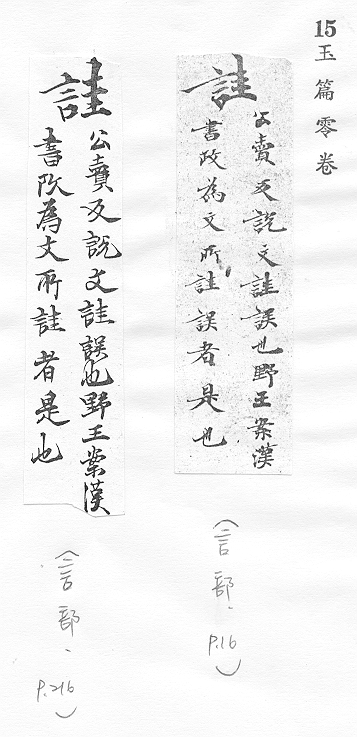 15玉篇零卷
詿
公賣反說文詿誤也野王案漢
書政為文所詿誤者是也
(言部、P.16)
詿
公賣反說文詿誤也野王案漢
書改為文所詿者是也
(言部、P.216)